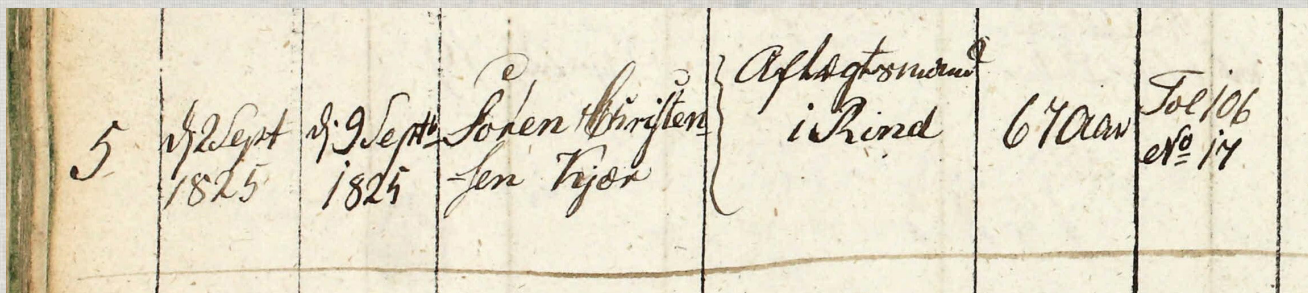 5
d 2 Sept
1825
d 9 Septb
1825
Søren Christen
sen Kjær
Aftægtsmand
i Rind
67 Aar
Fol 106
No 17